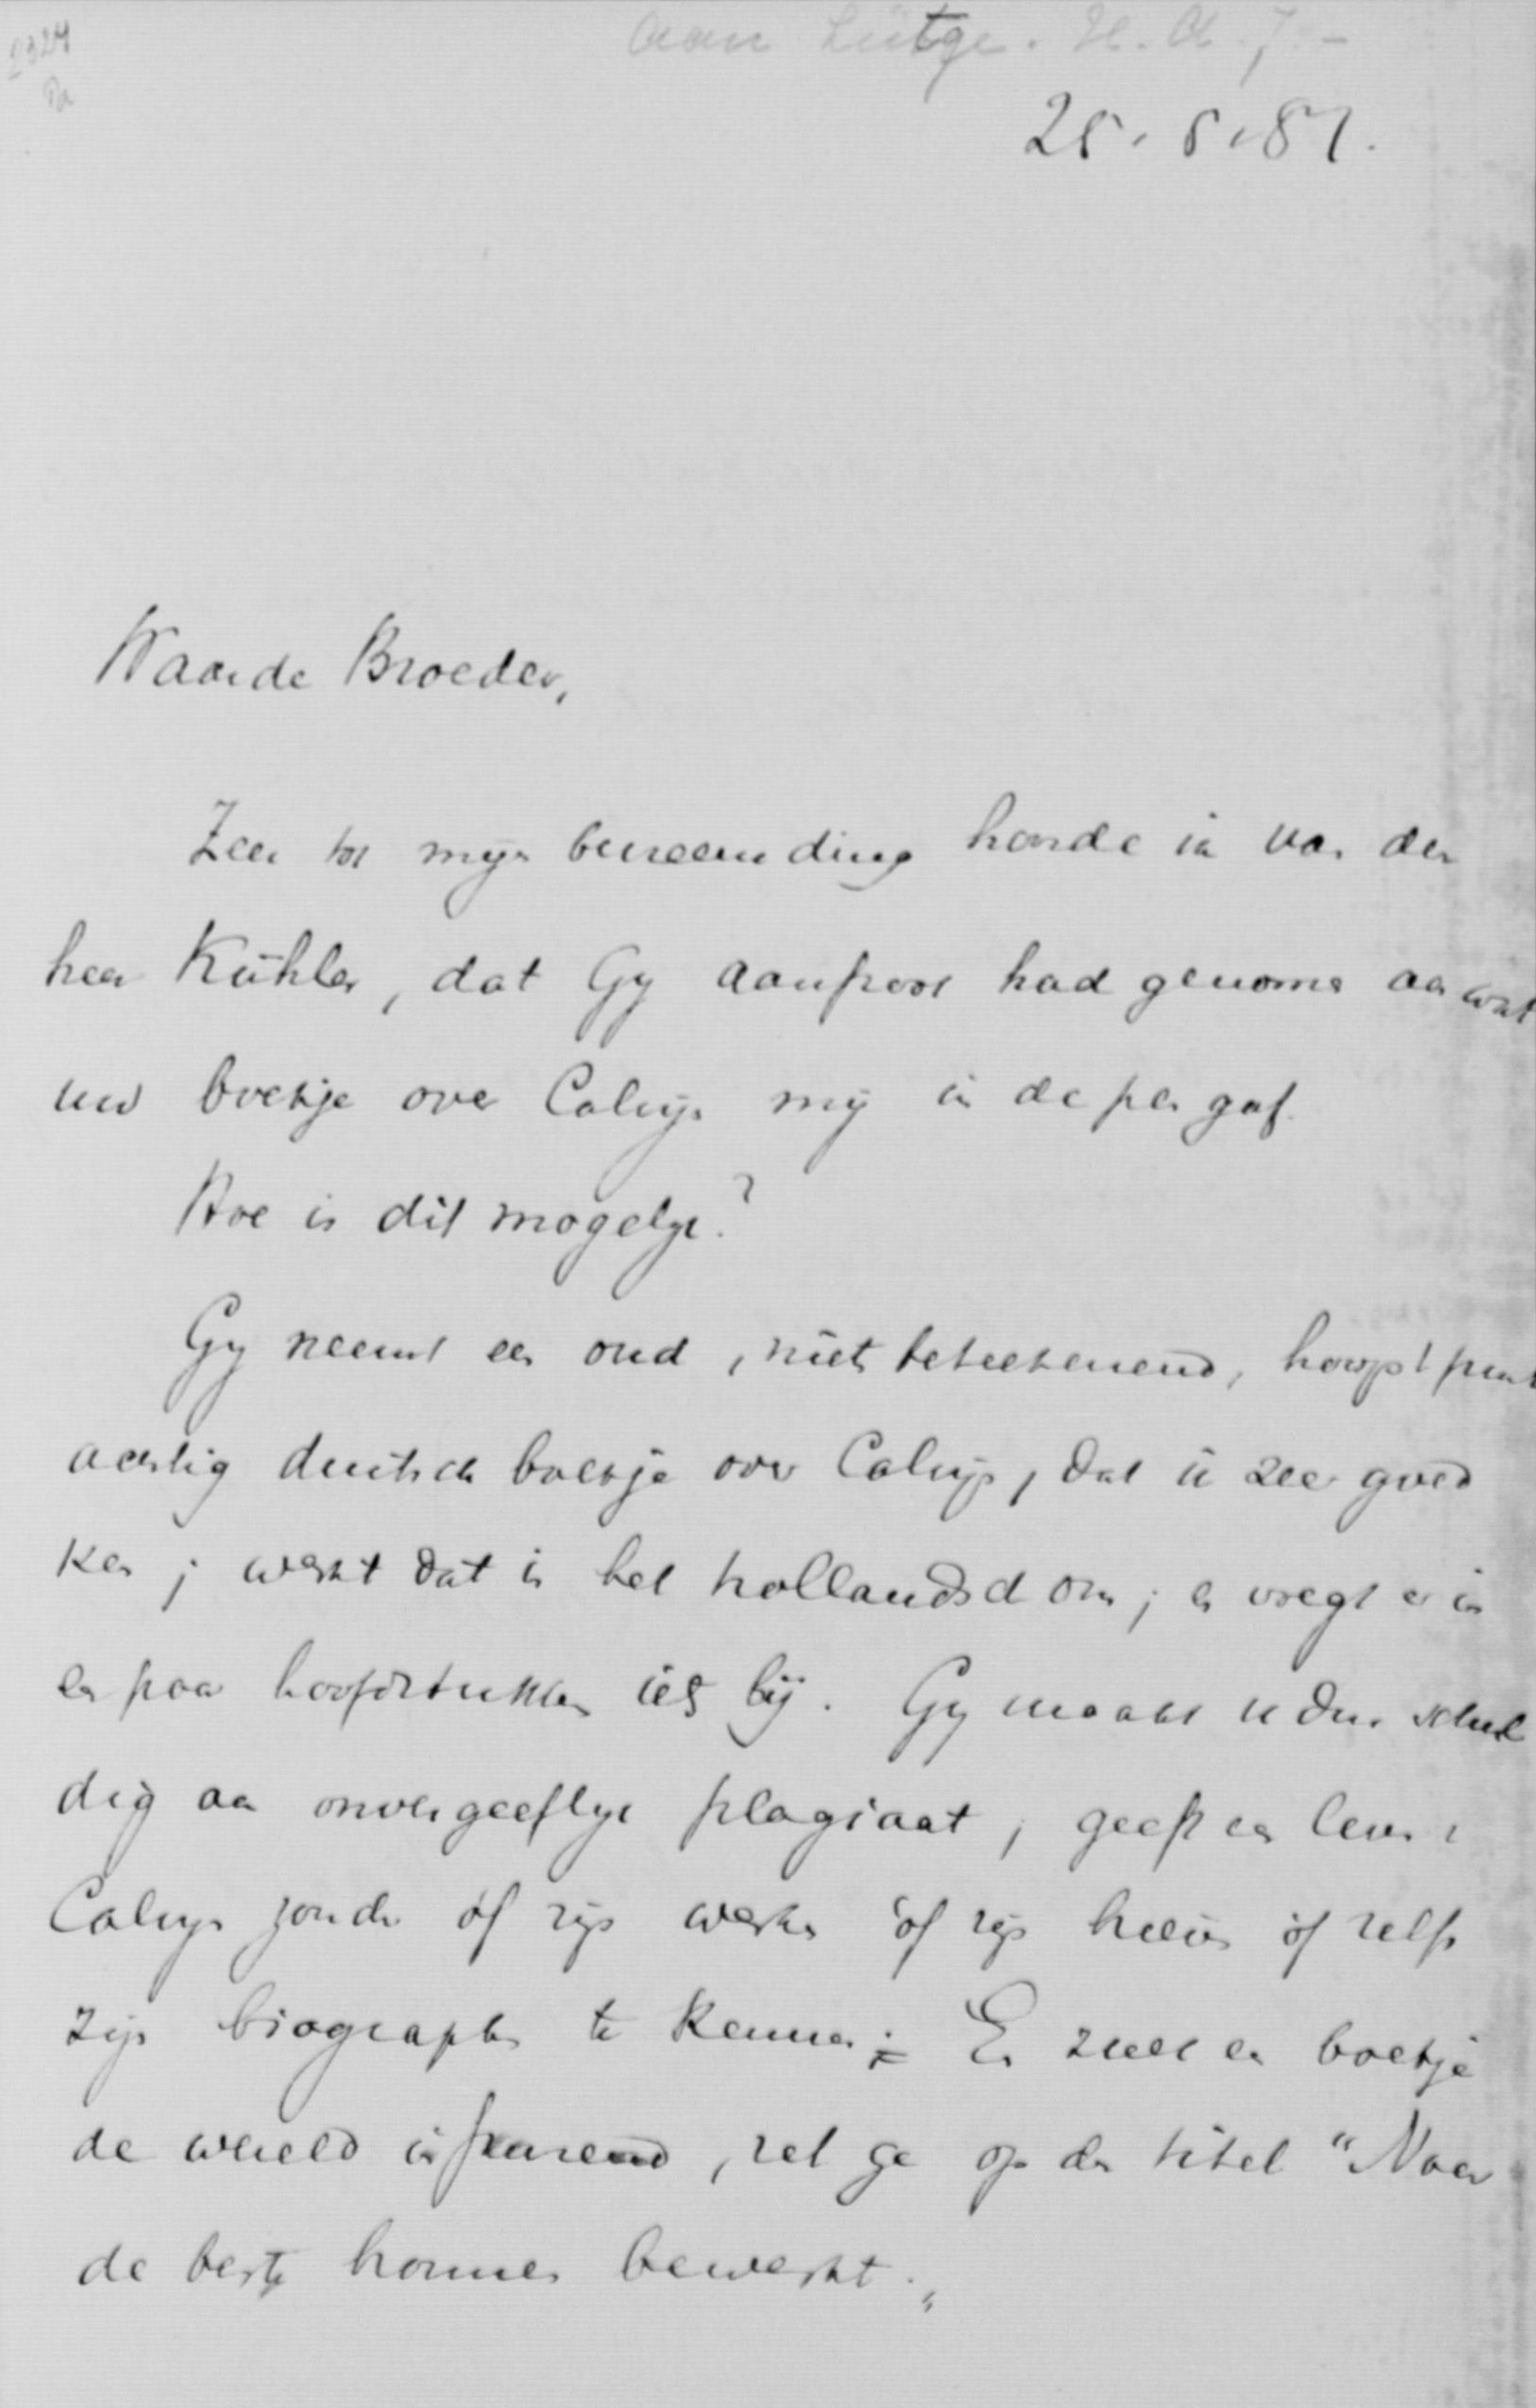 aan Lütge. H. A. J. -
25. 5. 87.
Waarde Broeder,
Zeer tot mijn bevreemding hoorde ik van den
heer Kühler, dat Gy aanstoot had genomen aan wat
uw boekje over Calvyn my in de pen gaf.
Hoe is dit mogelyk?
Gy neemt een oud, niets beteekenend, hoogst
aardig duitsch boekje over Calvyn, dat ik zeer goed
ken; werkt dat in het hollandsch om; en voegt er in
een paar hoofdstukken iets bij. Gy maakt u dus schul
dig aan onvergeeflyk plagiaat; geeft een leven v
Calvyn zonder óf zijn werken óf zijn brieven óf zelfs
zijn biographen te kennen; En zulk een boekje
de wereld in sturend, zet ge op den titel "Naar
de beste bronnen bewerkt."